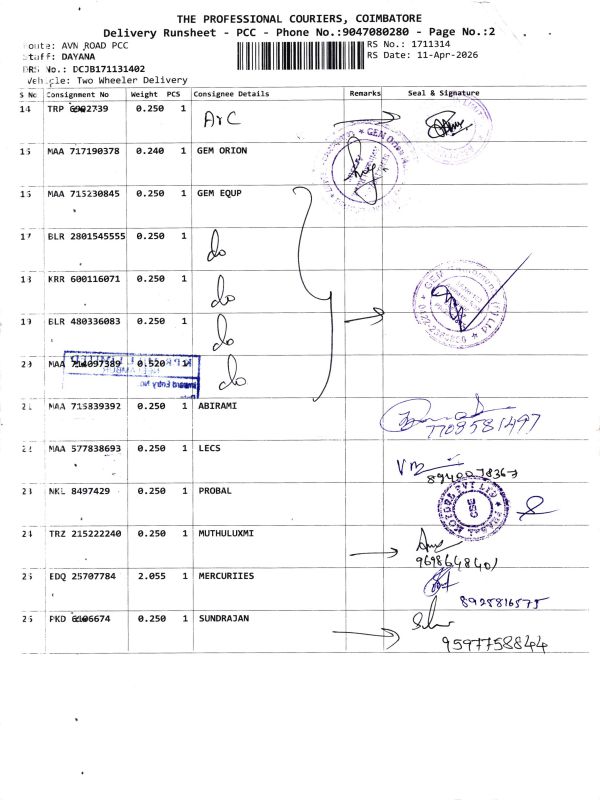 THE PROFESSIONAL COURIERS, COIMBATORE
Delivery Runsheet - PCC - Phone No.:9047080280 - Page No.:2
Route: AVN ROAD PCC
RS No.: 1711314
Staff: DAYANA
RS Date: 11-Apr-2026
DRS No.: DCJB171131402
Vehicle: Two Wheeler Delivery
S No Consignment No Weight PCS Consignee Details Remarks Seal & Signature
14 TRP 6902739 0.250 1 ArC
15 MAA 717190378 0.240 1 GEM ORION
16 MAA 715230845 0.250 1 GEM EQUP
17 BLR 2801545555 0.250 1 do
18 KRR 600116071 0.250 1 do
19 BLR 480336083 0.250 1 do
20 MAA 714097389 0.520 1 do
Inward Entry No
21 MAA 715839392 0.250 1 ABIRAMI
7708581497
22 MAA 577838693 0.250 1 LECS
8940078367
23 NKL 8497429 0.250 1 PROBAL
24 TRZ 215222240 0.250 1 MUTHULUXMI
9698648401
25 EDQ 25707784 2.055 1 MERCURIIES
8925816575
26 PKD 6106674 0.250 1 SUNDRAJAN
9597758844